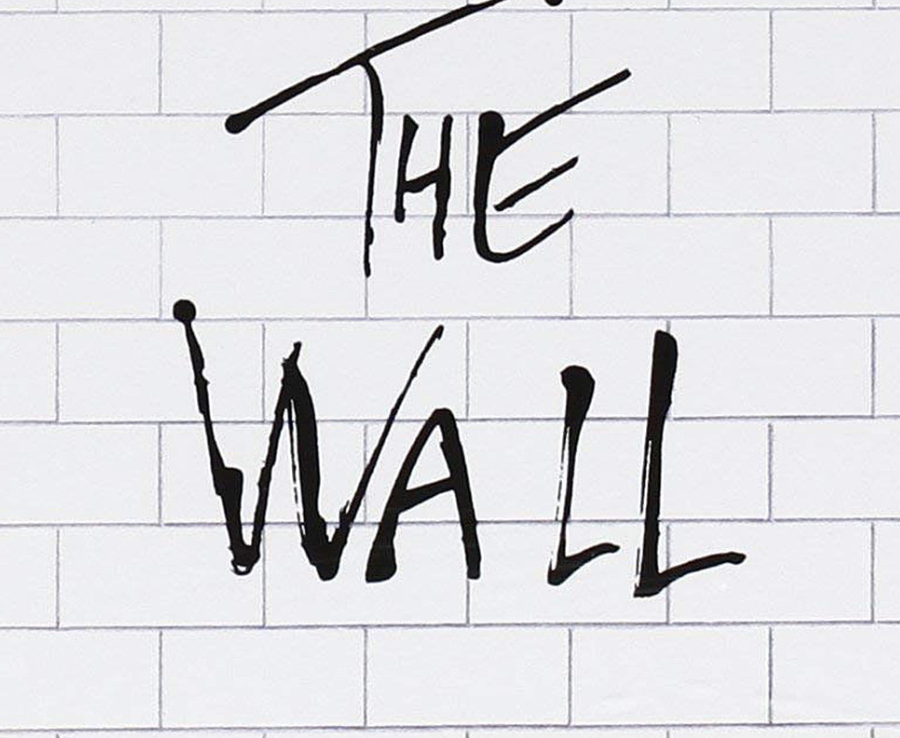 THE
WALL